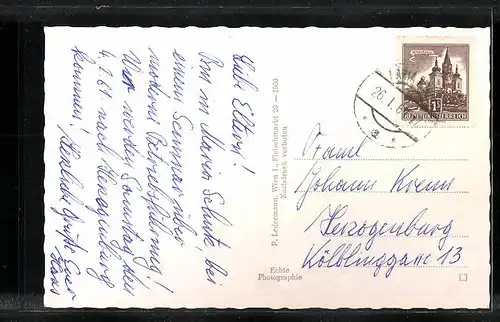 Liebe Eltern!
Bin in Maria Schutz bei
einem Seminar über
moderne Betriebsführung!
Wir werden Sonntag den
4.2.61 nach Herzogenburg
kommen! Herzliche Grüße Euer
Hans
P. Ledermann, Wien I., Fleischmarkt 20 — 1960
Nachdruck verboten
Echte
Photographie
26. I. 6
* a *
1S
REPUBLIK ÖSTERREICH
Johann Krenn
Herzogenburg
Kölblinggasse 13